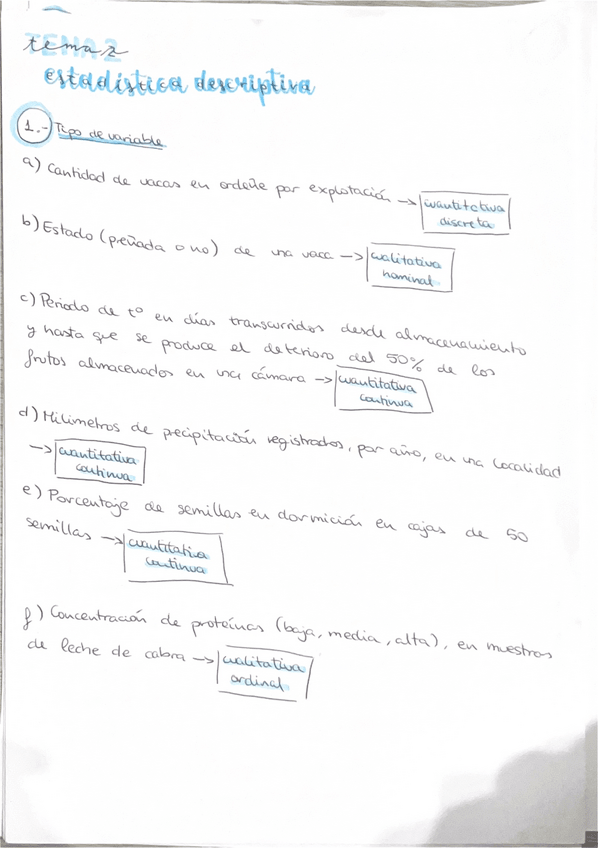 TEMA 2
tema 2
estadística descriptiva
1.- Tipo de variable
a) Cantidad de vacas en ordeñe por explotación → cuantitativa
discreta
b) Estado (preñada o no) de una vaca → cualitativa
nominal
c) Periodo de tº en días transcurridos desde almacenamiento
y hasta que se produce el deterioro del 50% de los
frutos almacenados en una cámara → cuantitativa
continua
d) Milímetros de precipitación registrados, por año, en una localidad
→ cuantitativa
continua
e) Porcentaje de semillas en dormición en cajas de 50
semillas → cuantitativa
continua
f) Concentración de proteínas (baja, media, alta), en muestras
de leche de cabra → cualitativa
ordinal